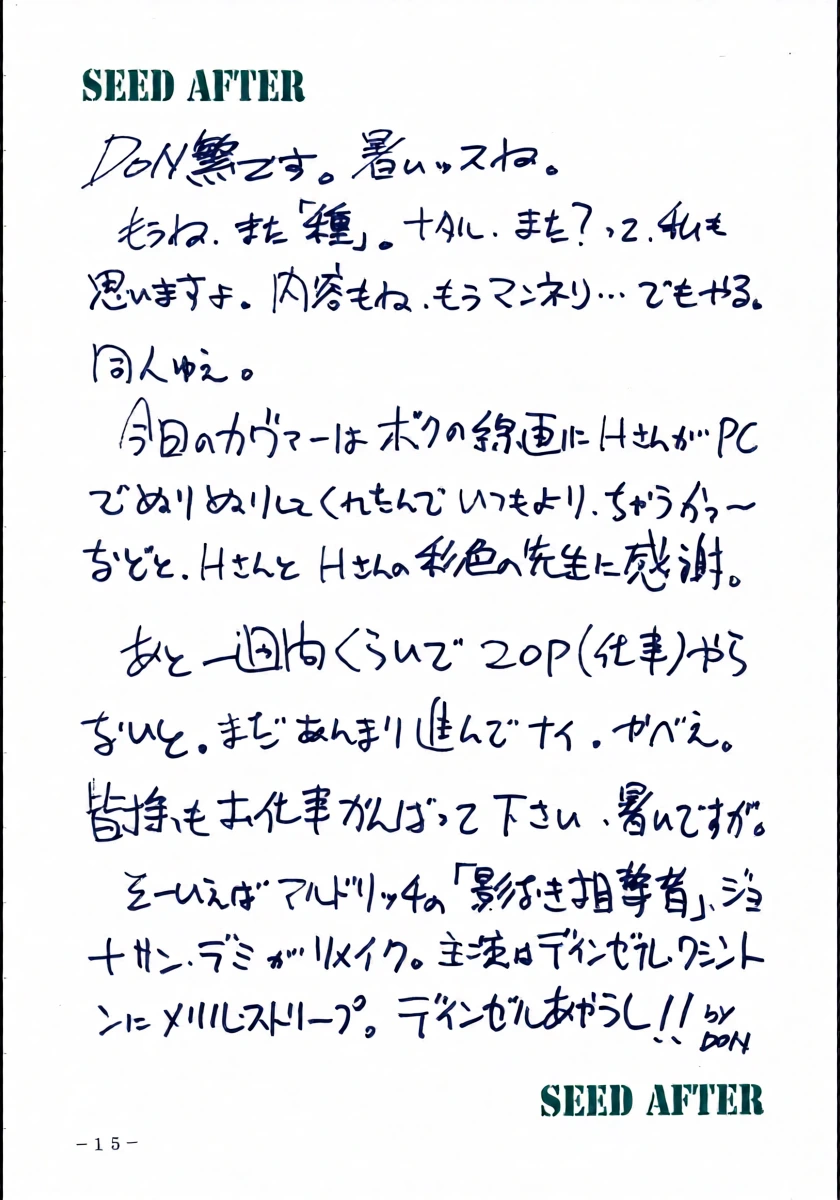 SEED AFTER
DON繁です。暑いッスね。
もうね、また「種」。ナタル、また?って、私も
思いますよ。内容もね、もうマンネリ…でもやる。
同人ゆえ。
今回のカヴァーはボクの線画にHさんが…PC
でぬりぬりしてくれたんでいつもより、ちゃうかっ〜
などと、HさんとHさんの彩色の先生に感謝。
あと一週間くらいで20P(仕事)やら
ないと。まだあんまり進んでナイ。やべえ。
皆様もお仕事がんばって下さい、暑いですが。
そーいえばマルドリッチの「影なき狙撃者」、ジョ
ナサン・デミがリメイク。主演はディンゼル・ワシント
ンにメリル・ストリープ。ディンゼルあやうし!! by
DON
SEED AFTER
-15-